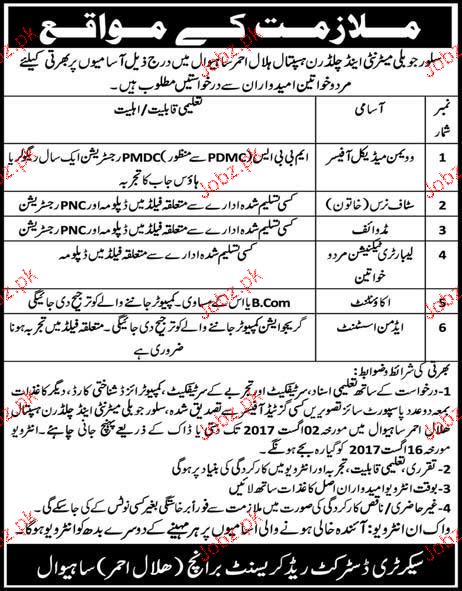 ملازمت کے مواقع
سلور جوبلی میٹرنٹی اینڈ چلڈرن ہسپتال ہلال احمر ساہیوال میں درج ذیل آسامیوں پر بھرتی کیلئے
مرد و خواتین امیدواران سے درخواستیں مطلوب ہیں۔
نمبر شمار آسامی تعلیمی قابلیت/اہلیت
1 وویمن میڈیکل آفیسر ایم بی بی ایس (PDMC سے منظور) PMDC رجسٹریشن ایک سال ریگولر یا ہاؤس جاب کا تجربہ
2 سٹاف نرس (خاتون) کسی تسلیم شدہ ادارے سے متعلقہ فیلڈ میں ڈپلومہ اور PNC رجسٹریشن
3 مڈوائف کسی تسلیم شدہ ادارے سے متعلقہ فیلڈ میں ڈپلومہ اور PNC رجسٹریشن
4 لیبارٹری ٹیکنیشن مرد و خواتین کسی تسلیم شدہ ادارے سے متعلقہ فیلڈ میں ڈپلومہ
5 اکاؤنٹنٹ B.Com یا اس کے مساوی۔ کمپیوٹر جاننے والے کو ترجیح دی جائیگی
6 ایڈمن اسسٹنٹ گریجوایشن کمپیوٹر جاننے والے کو ترجیح دی جائیگی۔ متعلقہ فیلڈ میں تجربہ ہونا ضروری ہے
بھرتی کی شرائط و ضوابط:
1- درخواست کے ساتھ تعلیمی اسناد، سرٹیفکیٹ اور تجربے کے سرٹیفکیٹ، کمپیوٹرائزڈ شناختی کارڈ، دیگر کاغذات
بمعہ دو عدد پاسپورٹ سائز تصویریں کسی گزٹیڈ آفیسر سے تصدیق شدہ، سلور جوبلی میٹرنٹی اینڈ چلڈرن ہسپتال
ھلال احمر ساہیوال میں مورخہ 02 اگست 2017 تک دستی یا ڈاک کے ذریعے پہنچ جانی چاہئے۔ انٹرویو
مورخہ 16 اگست 2017 کو گیارہ بجے ہونگے۔
2- تقرری، تعلیمی قابلیت، تجربہ اور انٹرویو میں کارکردگی کی بنیاد پر ہوگی
3- بوقت انٹرویو امیدواران اصل کاغذات ساتھ لائیں
4- غیر حاضری/ناقص کارکردگی کی صورت میں ملازمت سے فوراً برخاستگی بغیر کسی نوٹس کے کی جاسکے گی۔
واک ان انٹرویو: آئندہ خالی ہونے والی آسامیوں پر ہر مہینے کے دوسرے بدھ کو انٹرویو ہوگا۔
سیکرٹری ڈسٹرکٹ ریڈ کریسنٹ برانچ (ھلال احمر) ساہیوال
Jobz.pk